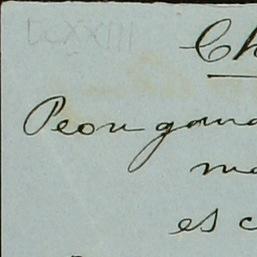 LXXIII
Ch
Peon gama
me
es c